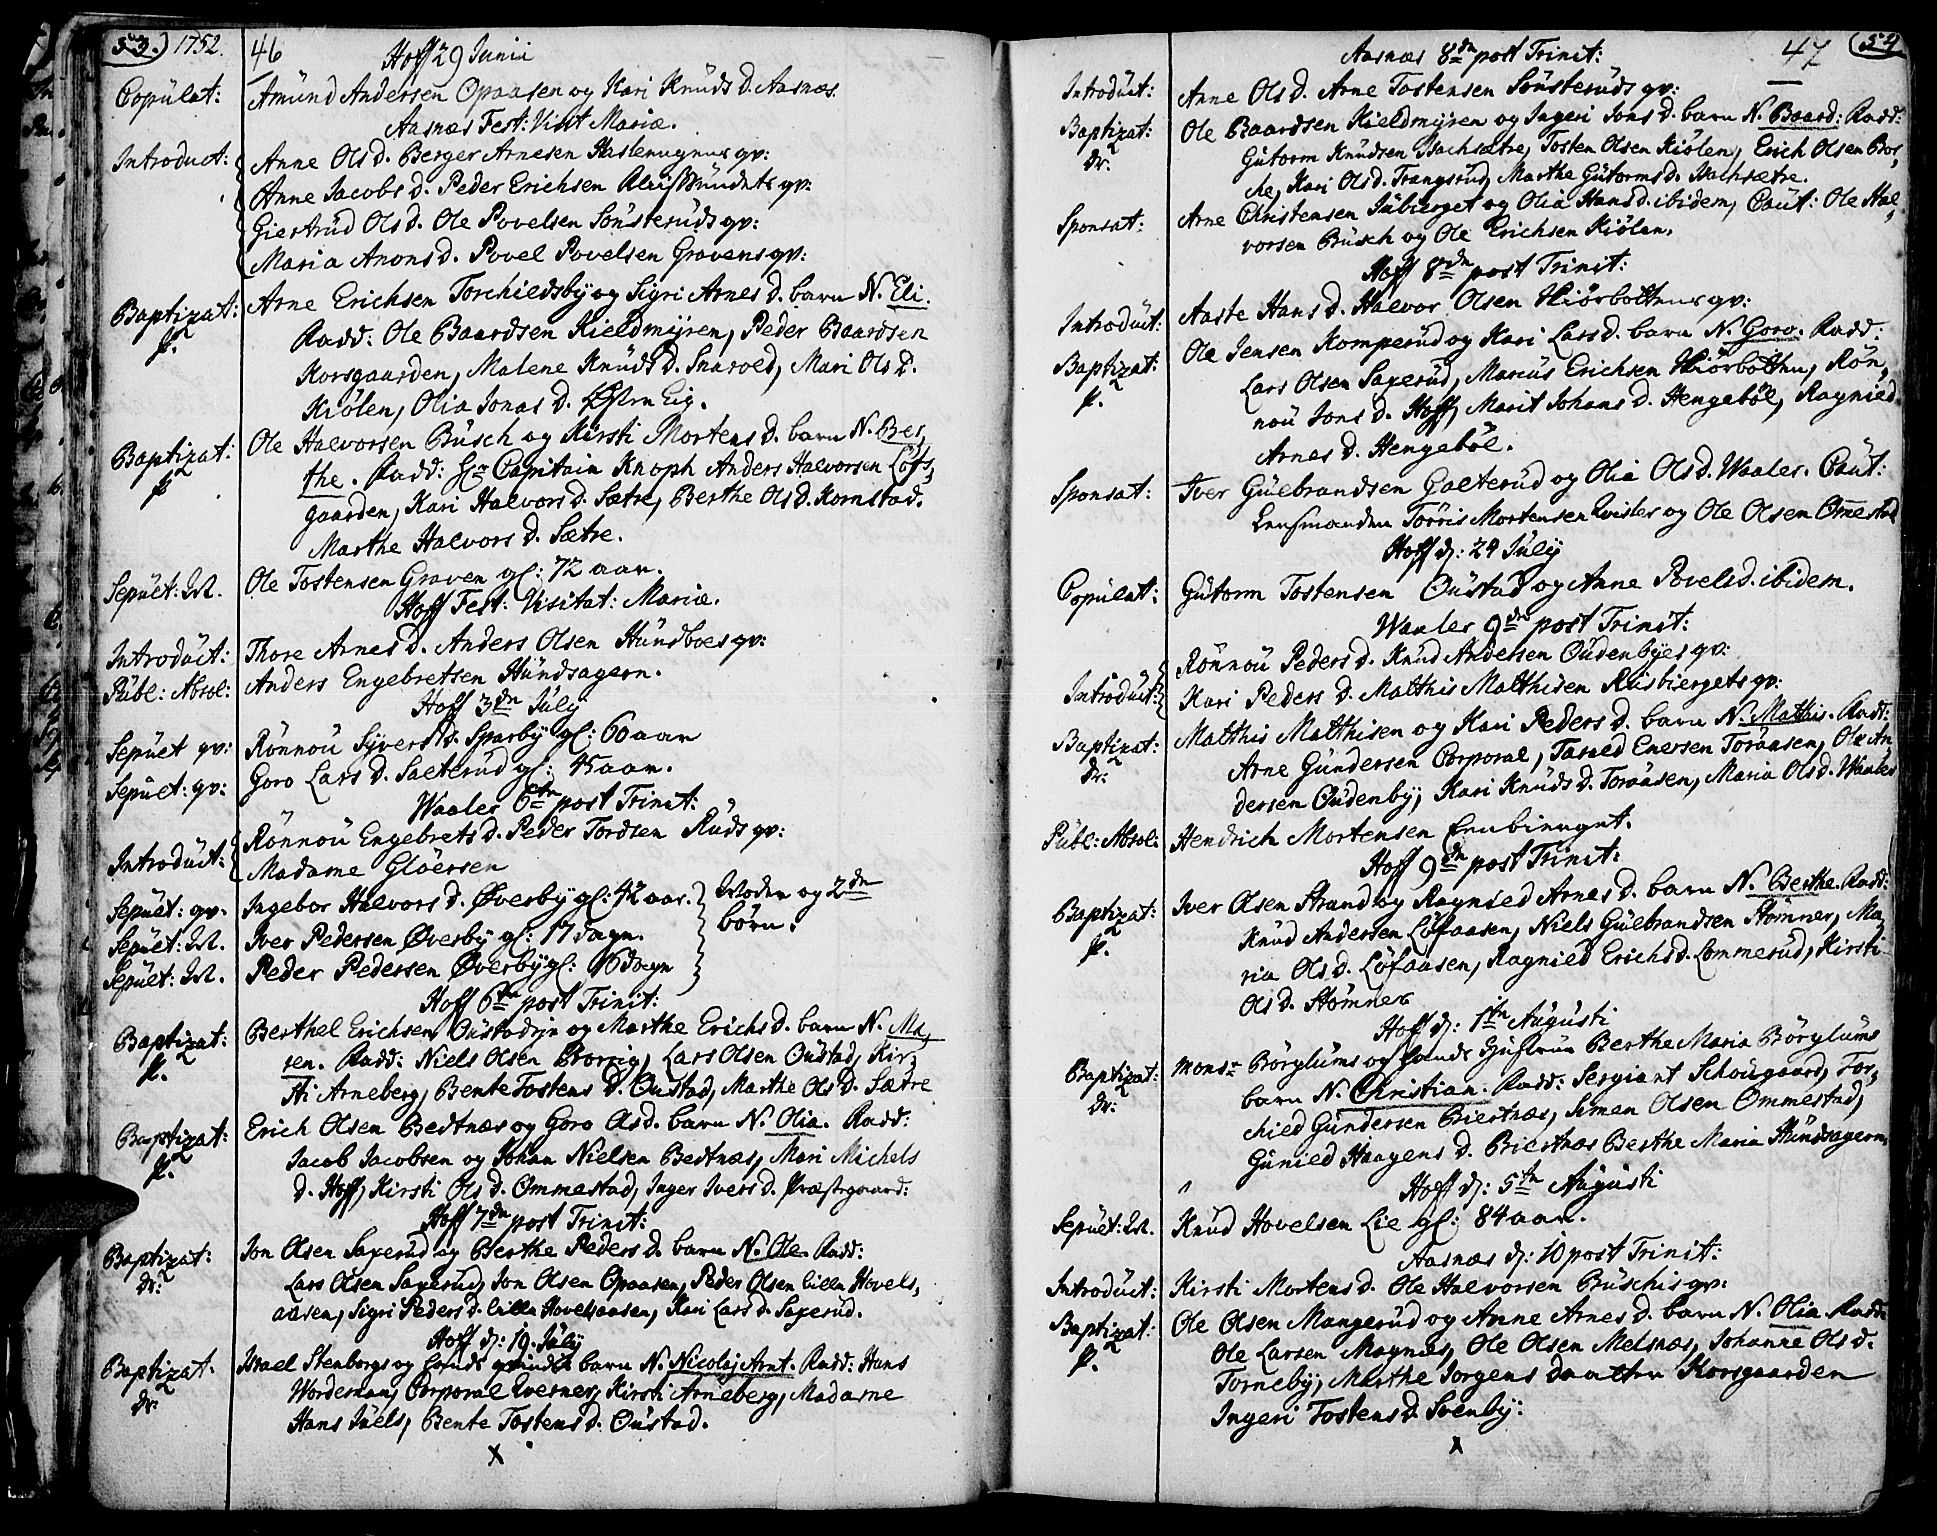 53. 1752. 46 Hoff 29 Junii
Copulat: Amund Andersen Opaasen og Kari Knuds D. Aasnæs.
Aasnæs Fest: Visit Mariæ.
Introduct: Anne Ols D. Berger Arnesen gv:
Anne Jacobs D. Peder Erichsen gv:
Giertrud Ols D. Ole Povelsen Sönsteruds gv:
Maria Amons D. Povel Povelsen Gravens gv:
Baptizat: Arne Erichsen Torchildsby og Sigri Arnes D. barn N. Eli.
p. Fadd: Ole Baardsen Kieldmyren, Peder Baardsen
Korsgaarden, Malene Knuds D. Snarvel, Mari Ols D.
Kiölen, Olia Jonas D. Østen Eig.
Baptizat: Ole Halvorsen Busch og Kirsti Mortens D. barn N. Ber,
p the. Fadd: Hr Capitain Knoph Anders Halvorsen Löfs,
gaarden, Kari Halvors D. Sætre, Berthe Ols D. Kornstad.
Marthe Halvors D. Sætre.
Sepult: M. Ole Tostensen Graven gl: 72 aar.
Hoff Fest: Visitat: Mariæ.
Introduct: Thore Arnes D. Anders Olsen Hundboes gv:
Publ: Absol: Anders Engebretsen Hundsagern.
Hoff 3dn July
Sepult gv: Rönnou Syvers D. Sparby gl: 60 aar
Sepult: gv: Goro Lars D. Sæterud gl: 45 aar.
Waaler 6tn post Trinit:
Introduct: Rönnou Engebrets D. Peder Tordsen Ruds gv:
Madame Glöersen
Sepult: gv. Ingebor Halvors D. Øverby gl: 42 aar. Moder og 2de
Sepult: M. Iver Pedersen Øverby gl: 17 dage. börn.
Sepult: M. Peder Pedersen Øverby gl: 16 dage
Hoff 6tn post Trinit:
Baptizat: Berthel Erichsen Oustadeje og Marthe Erichs D. barn N. Ma,
p. ren. Fadd: Niels Olsen Borrig, Lars Olsen Oustad, Kir,
sti Arneberg, Bente Tostens D. Oustad, Marthe Ols D. Sætre
Baptizat: Erich Olsen Bedtnæs og Goro Ols D. barn N. Olia. Fadd:
p. Jacob Jacobsen og Johan Nielsen Bedtnæs, Mari Michels
D. Hoff, Kirsti Ols D. Ommestad, Inger Ivers D. Præstegaard:
Hoff 7dn post Trinit:
Baptizat: Jon Olsen Sagerud og Berthe Peders D. barn N. Ole Fadd:
dr: Lars Olsen Sagerud, Jon Olsen Opaasen, Peder Olsen lille Hovels,
aasen, Sigri Peders D. lille Hovelsaasen, Kari Lars D. Sagerud.
Hoff d: 19. July
Baptizat. Israel Stenborgs og hands qvindes barn N. Nicolaj Arnt. Fadd: Hans
dr: Wordeman, Corporal Qverner, Kirsti Arneberg, Madame
Hans Juels, Bente Tostens D. Oustad.
x
Aasnæs 8dn post Trinit: 47 54
Introduct: Anne Ols D. Arne Tostensen Sönsteruds gv:
Baptizat: Ole Baardsen Kieldmyren og Ingeri Jons D. barn N. Baard: Fadd:
dr. Gutorm Knudsen Bachsætre, Tosten Olsen Kiölen, Erich Olsen Bor,
che, Kari Ols D. Trangsrud, Marthe Gutorms D. Bachsætre.
Sponsat: Arne Christensen Juliberget og Olia Hans D. ibidem, Caut: Ole Hal,
vorsen Busch og Ole Erichsen Kiölen.
Hoff 8dn post Trinit:
Introduct: Aaste Hans D. Halvor Olsen Kiörbottens gv:
Baptizat: Ole Jensen Komperud og Kari Lars D. barn N. Goro. Fadd:
p. Lars Olsen Sagerud, Marcus Erichsen Kiörbotten, Rön,
nou Jons D. Hoff, Marit Johans D. Hengeböl, Ragnild
Arnes D. Hengeböl.
Sponsat: Iver Gulbrandsen Galterud og Olia Ols D. Waaler. Caut:
Lensmanden Törris Mortensen Qvisler og Ole Olsen Omestad
Hoff d: 24 July
Copulat: Gutorm Tostensen Oustad og Anne Povels D. ibidem.
Waaler 9dn post Trinit:
Introduct: Rönnou Peders D. Knud Andersen Oudenbyes gv:
Kari Peders D. Matthis Matthisen Risbiergets gv:
Baptizat: Matthis Matthisen og Kari Peders D. barn N. Mathis. Fadd:
dr: Arne Gundersen Corporal, Tarald Enersen Toraasen, Ole An
dersen Oudenby, Kari Knuds D. Toraasen, Maria Ols D. Waaler
Publ: Absol: Hendrich Mortensen
Hoff 9dn post Trinit:
Baptizat: Iver Olsen Strand og Ragnild Arnes D. barn N. Berthe. Fadd:
p. Knud Andersen Löfaasen, Niels Gulbrandsen Stömner, Ma,
ria Ols D. Löfaasen, Ragnild Erichs D. Lommerud, Kirsti
Ols D. Stömner
Hoff d: 1tn Augusti
Baptizat: Monsr Börglums og hands Hustrue Berthe Maria Börglums
dr: barn N. Christian. Fadd: Sergiant Schougaard, Tor,
child Gundersen Briertnæs, Simen Olsen Ommestad,
Gunild Haagens D. Briertnæs Berthe Maria Hundsagern.
Hoff d: 5tn Augusti
Sepult: M. Knud Hovelsen Lie gl: 84 aar.
Aasnæs d: 10 post Trinit:
Introduct: Kirsti Mortens D. Ole Halvorsen Buschis gv:
Baptizat: Ole Olsen Mangerud og Anne Arnes D. barn N. Olia Fadd:
p. Ole Larsen Magnæs, Ole Olsen Melsnæs, Johanne Ols D.
Torneby, Marthe Jorgens daatter Korsgaarden
Ingeri Tostens D. Svenby:
x